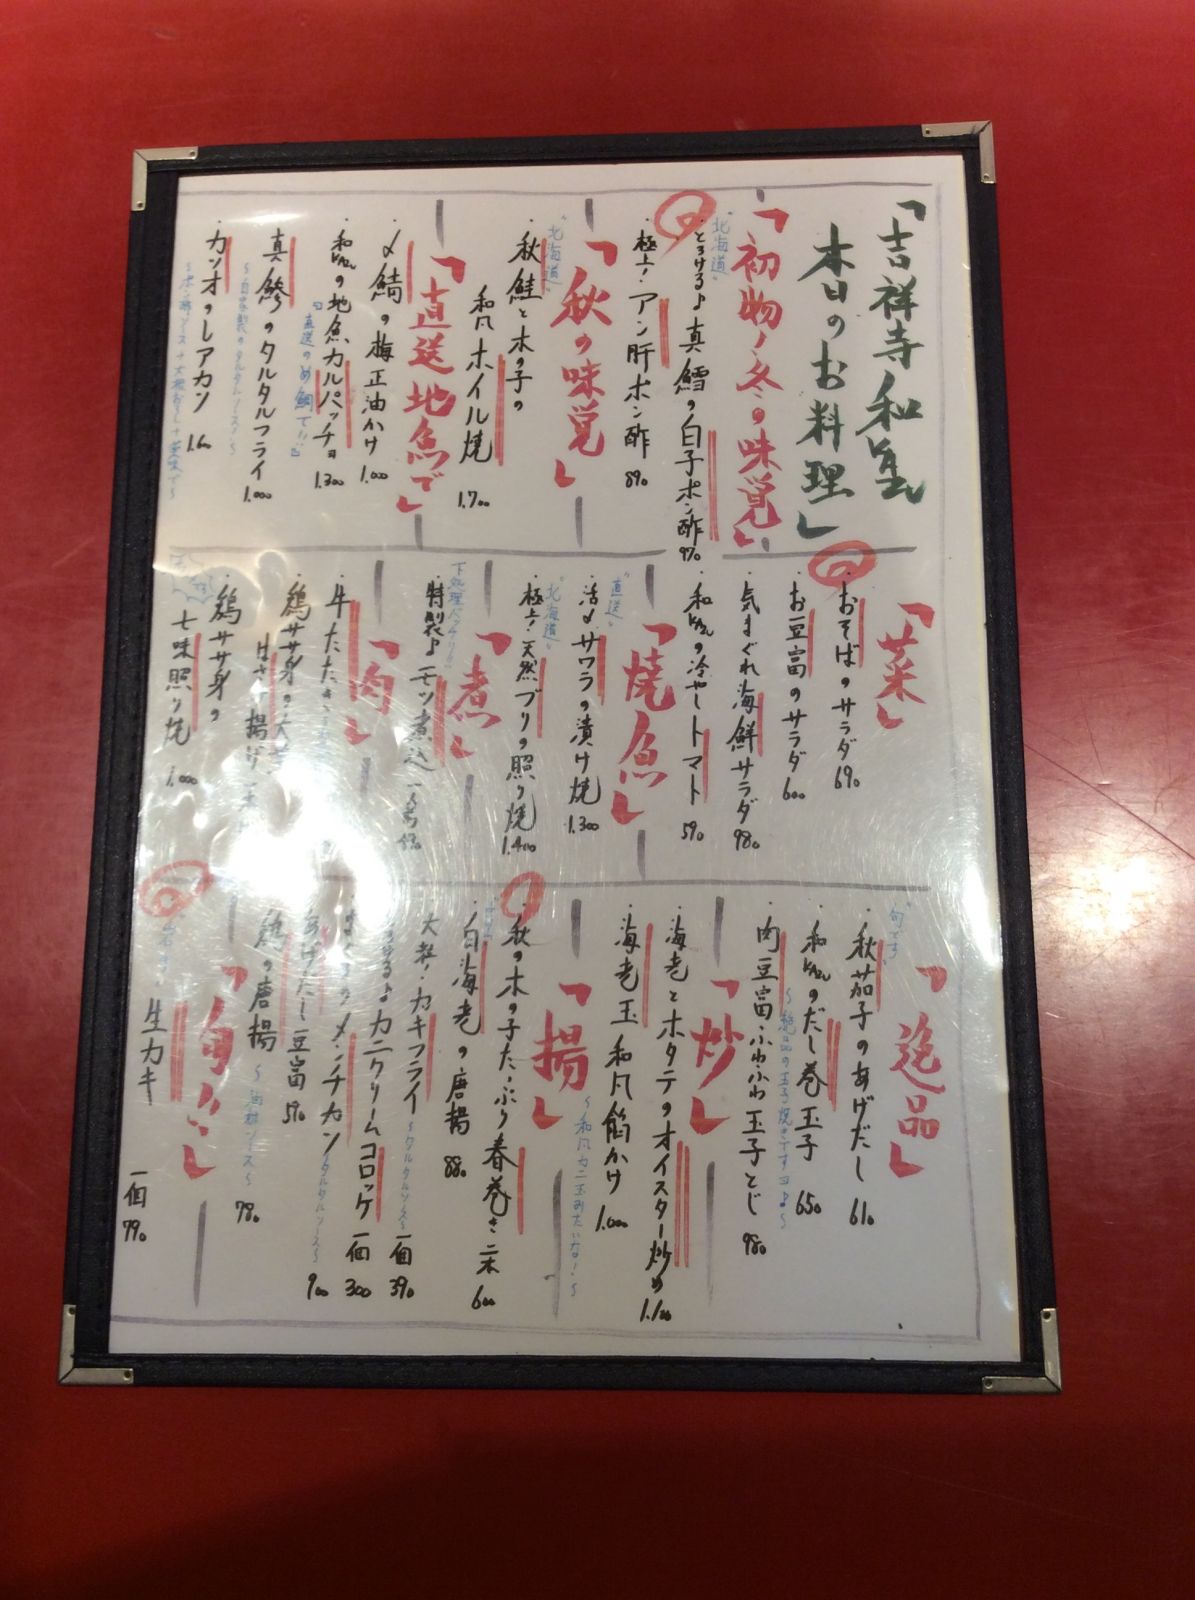 「吉祥寺 和
本日のお料理」
「初物！冬の味覚」
"北海道"
・とろける♪真鱈の白子ポン酢 970
・極上！アン肝ポン酢 890
「秋の味覚」
"北海道"
・秋鮭と木の子の
和風ホイル焼 1.700
「直送地魚で」
・〆鯖の梅正油かけ 1.000
・和KAZUの地魚カルパッチョ 1.300
・真鯵のタルタルフライ 1.000
・カツオのレアカツ
「菜」
・おそばのサラダ 690
・お豆富のサラダ 600
・気まぐれ海鮮サラダ 980
・和KAZUの冷やしトマト 590
「焼魚」
"直送"
・活〆サワラの漬け焼 1.300
"北海道"
・極上！天然ブリの照り焼 1.400
「煮」
下処理バッチリ
・特製♪モツ煮込
「肉」
・牛たたき
・鶏ササ身の
はさみ揚げ
・鶏ササ身の
七味照り焼 1.000
「逸品」
"旬です"
・秋茄子のあげだし 610
・和KAZUのだし巻玉子 650
〜絶品の玉子焼きですョ♪〜
・肉豆富ふわふわ玉子とじ 980
「炒」
・海老とホタテのオイスター炒め 1.100
・海老玉 和風餡かけ 1.000
〜和風カニ玉みたいな！〜
「揚」
・秋の木の子たっぷり春巻き 二本 600
・白海老の唐揚 880
・大粒！カキフライ 〜タルタルソース〜 一個 390
カニクリームコロッケ 一個 300
メンチカツ 〜タルタルソース〜 900
あげだし豆富 590
・鶏の唐揚 780
生カキ 一個 790